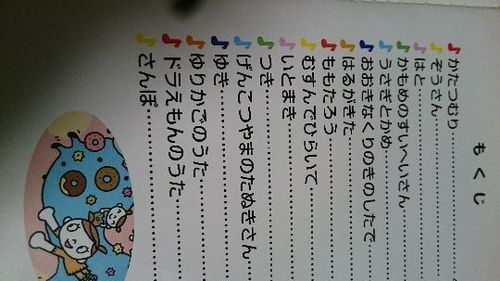 もくじ
かたつむり
ぞうさん
はと
かもめのすいへいさん
うさぎとかめ
おおきなくりのきのしたで
はるがきた
ももたろう
むすんでひらいて
いとまき
つき
げんこつやまのたぬきさん
ゆき
ゆりかごのうた
ドラえもんのうた
さんぽ